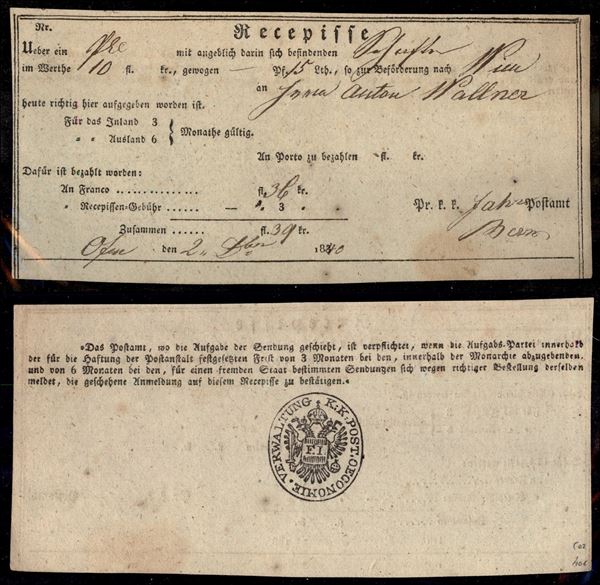 Nr. Recepisse
Ueber ein mit angeblich darin sich befindenden
im Werthe 10 fl. kr., gewogen — Pf. 15 Lth., so zur Beförderung nach Wien
an Herrn Anton Wallner
heute richtig hier aufgegeben worden ist.
Für das Inland 3
„ „ Ausland 6 } Monathe gültig.
An Porto zu bezahlen fl. kr.
Dafür ist bezahlt worden:
An Franco . . . . . . . . . . . . . fl. 36 kr.
„ Recepissen-Gebühr . . . . . . — „ 3 „
Pr. k. k. Postamt
Zusammen . . . . . . fl. 39 kr.
Ofen den 2. 1840
»Das Postamt, wo die Aufgabe der Sendung geschieht, ist verpflichtet, wenn die Aufgabs-Partei innerhalb
der für die Haftung der Postanstalt festgesetzten Frist von 3 Monaten bei den, innerhalb der Monarchie abzugebenden,
und von 6 Monaten bei den, für einen fremden Staat bestimmten Sendungen sich wegen richtiger Bestellung derselben
meldet, die geschehene Anmeldung auf diesem Recepisse zu bestätigen.«
VERWALTUNG K.K. POST-OECONOMIE
F I